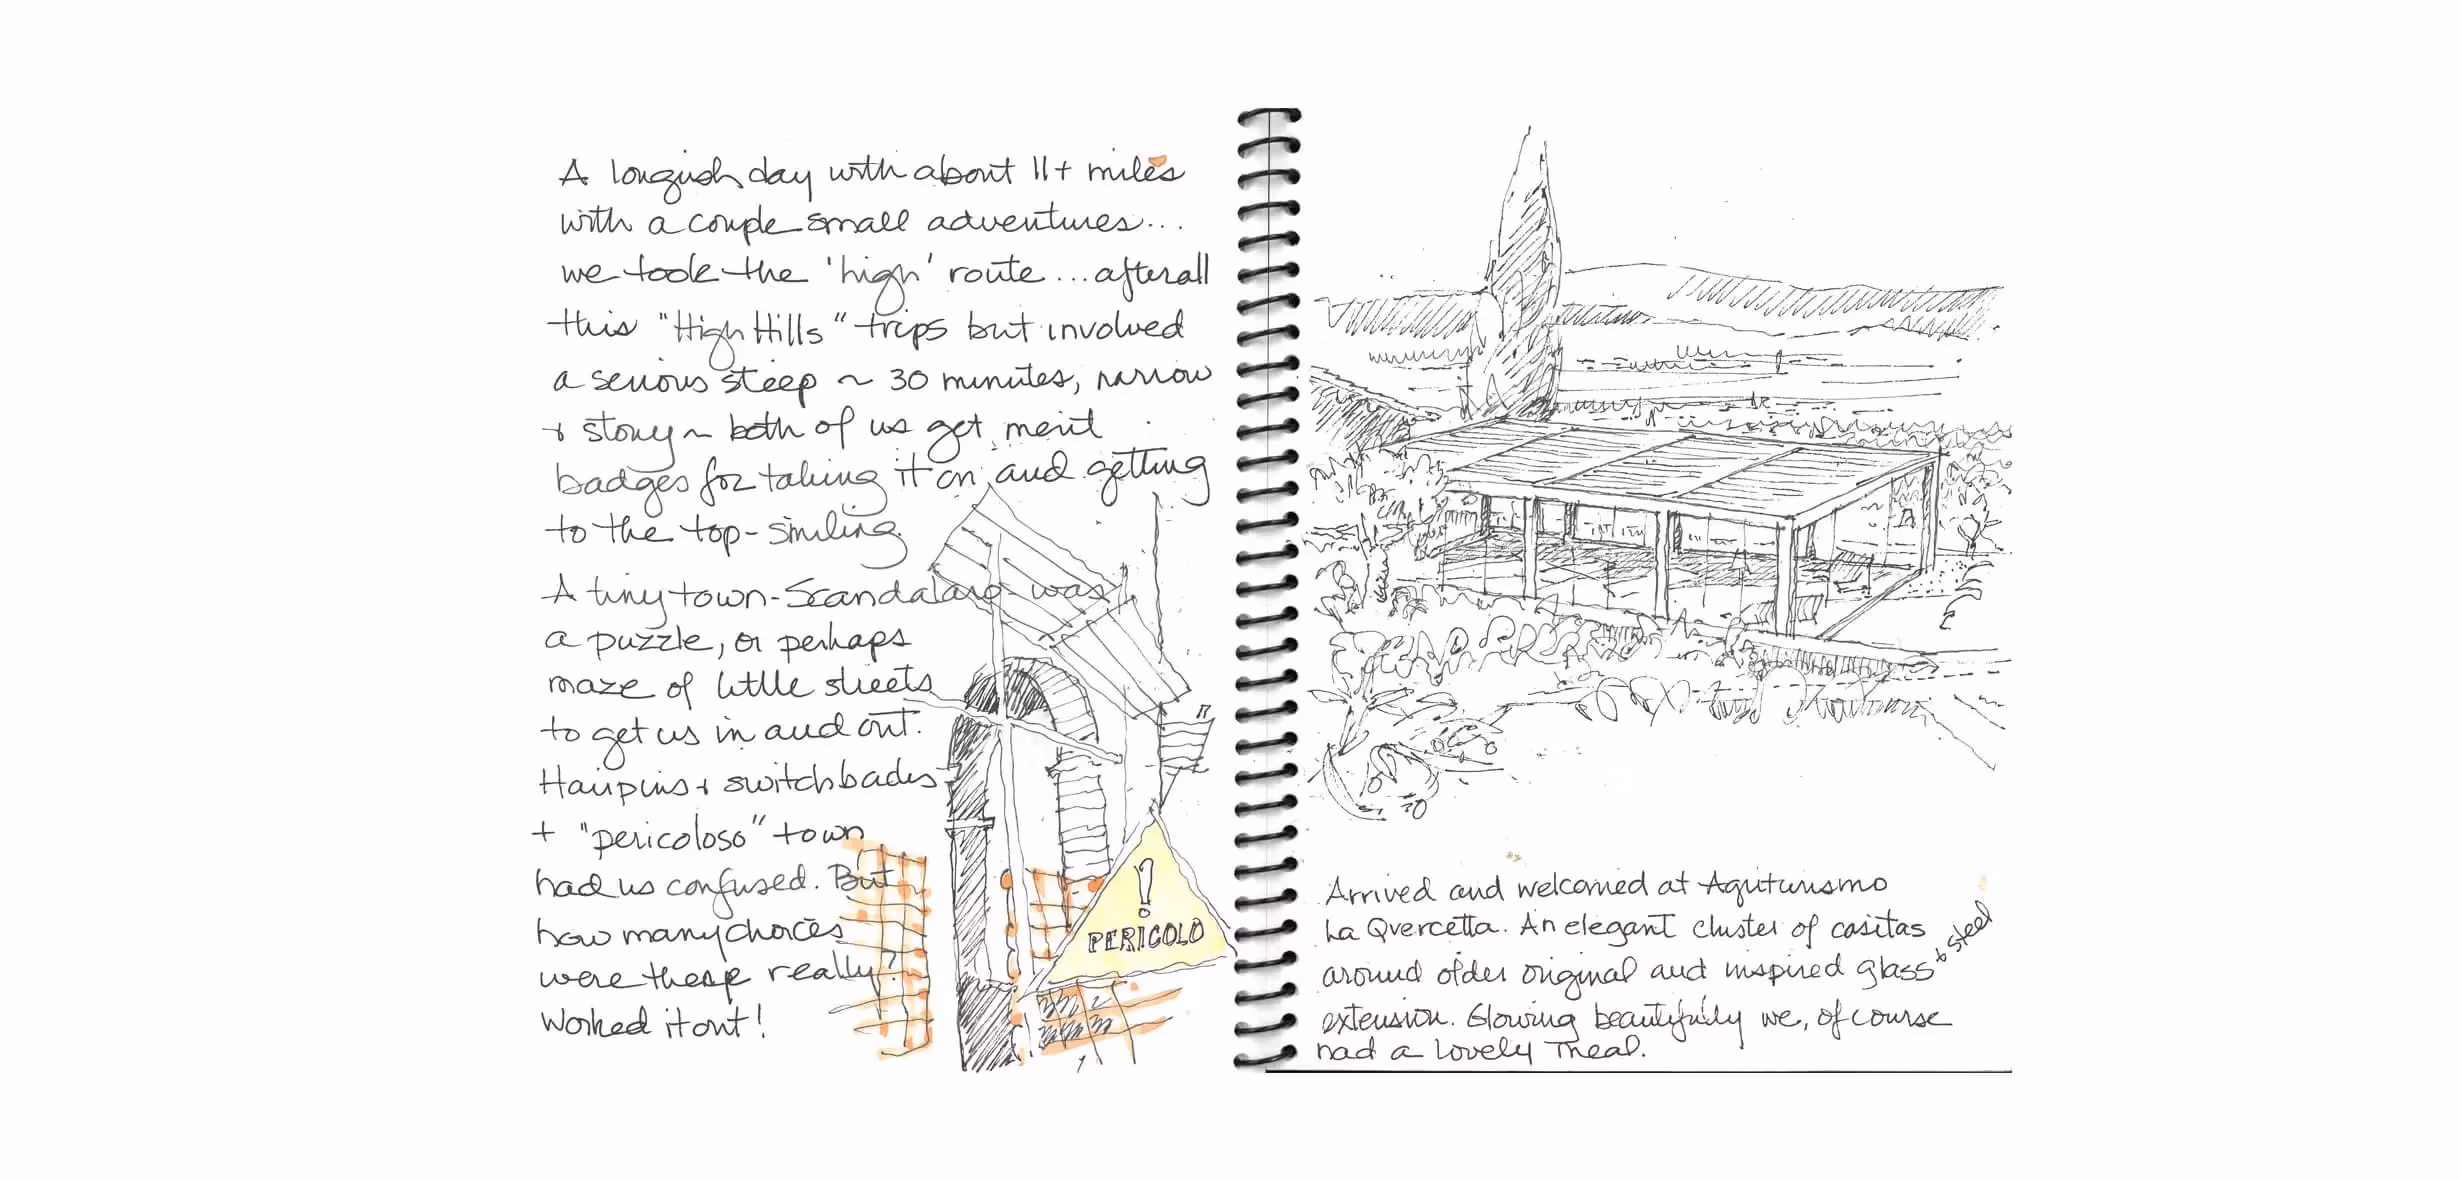 A longish day with about 11+ miles
with a couple small adventures...
we took the 'high' route... afterall
this "High Hills" trips but involved
a serious steep ~ 30 minutes, narrow
+ stony ~ both of us get merit
badges for taking it on and getting
to the top - smiling.
A tiny town - Scandalaro - was
a puzzle, or perhaps
maze of little streets
to get us in and out.
Hairpins + switchbacks
+ "pericoloso" town
had us confused. But
how many choices
were there really?
Worked it out!
!
PERICOLO
Arrived and welcomed at Agriturismo
La Quercetta. An elegant cluster of casitas
around older original and inspired glass + steel
extension. Glowing beautifully we, of course
had a lovely meal.